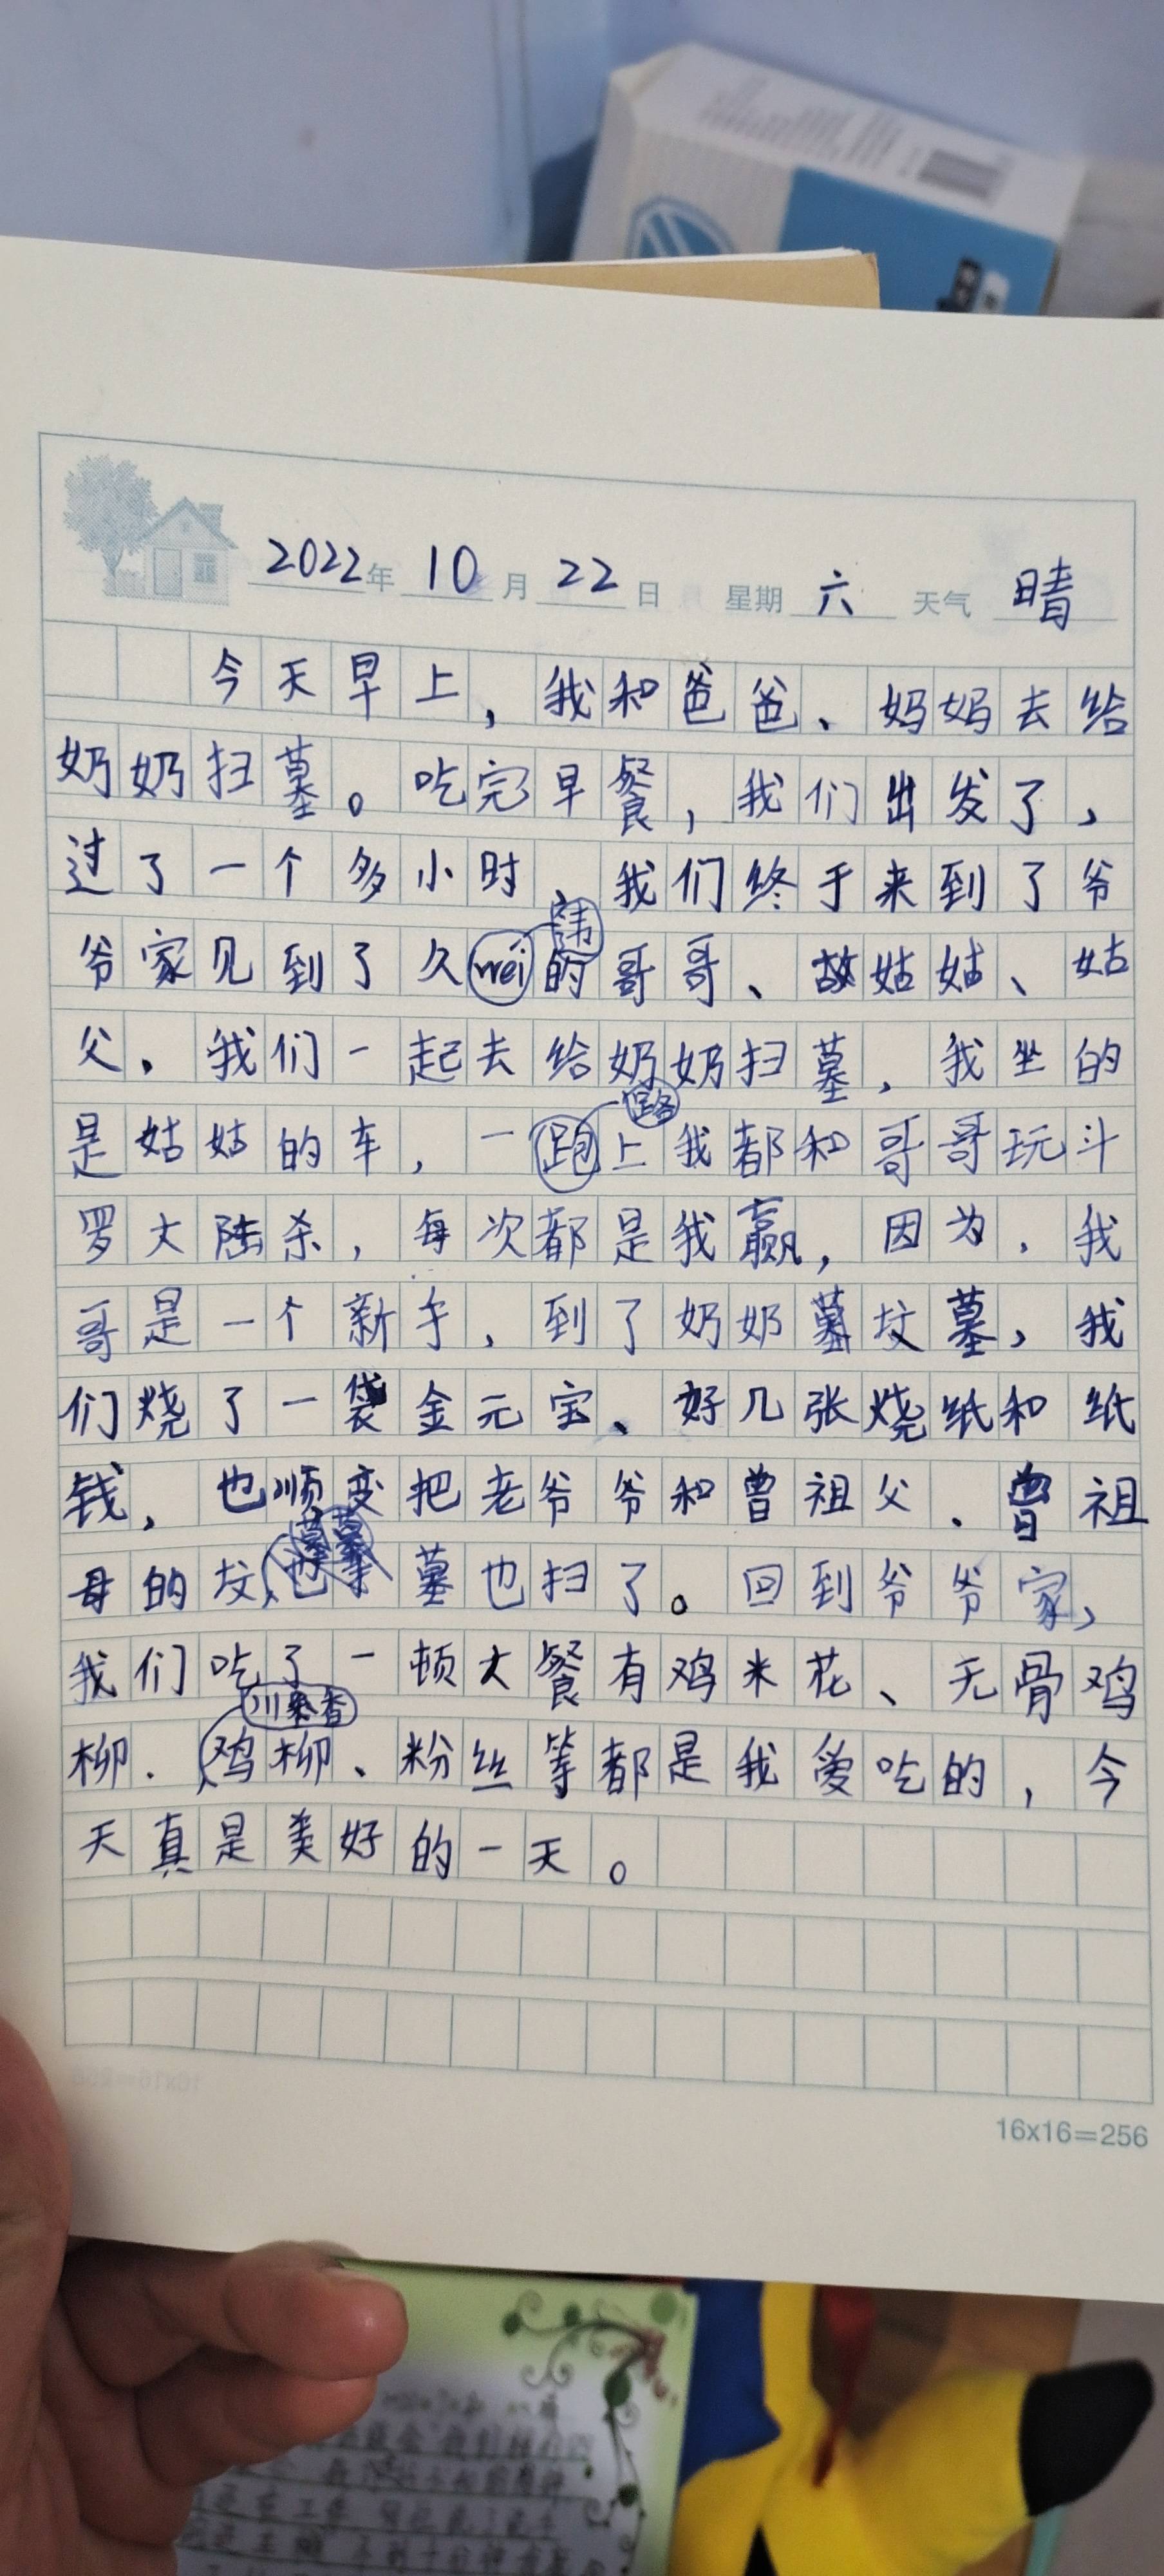 2022年 10月 22日 星期 六 天气 晴
今天早上，我和爸爸、妈妈去给
奶奶扫墓。吃完早餐，我们出发了，
过了一个多小时，我们终于来到了爷
爷家见到了久违的哥哥、故姑姑、姑
父.我们一起去给奶奶扫墓，我坐的
是姑姑的车，一路上我都和哥哥玩斗
罗大陆杀，每次都是我赢，因为，我
哥是一个新手，到了奶奶墓坟墓，我
们烧了一袋金元宝、好几张烧纸和纸
钱，也顺变把老爷爷和曾祖父.曾祖
母的坟墓也扫了。回到爷爷家，
我们吃了一顿大餐有鸡米花、无骨鸡
柳.川香鸡柳、粉丝等都是我爱吃的，今
天真是美好的一天。
16x16=256